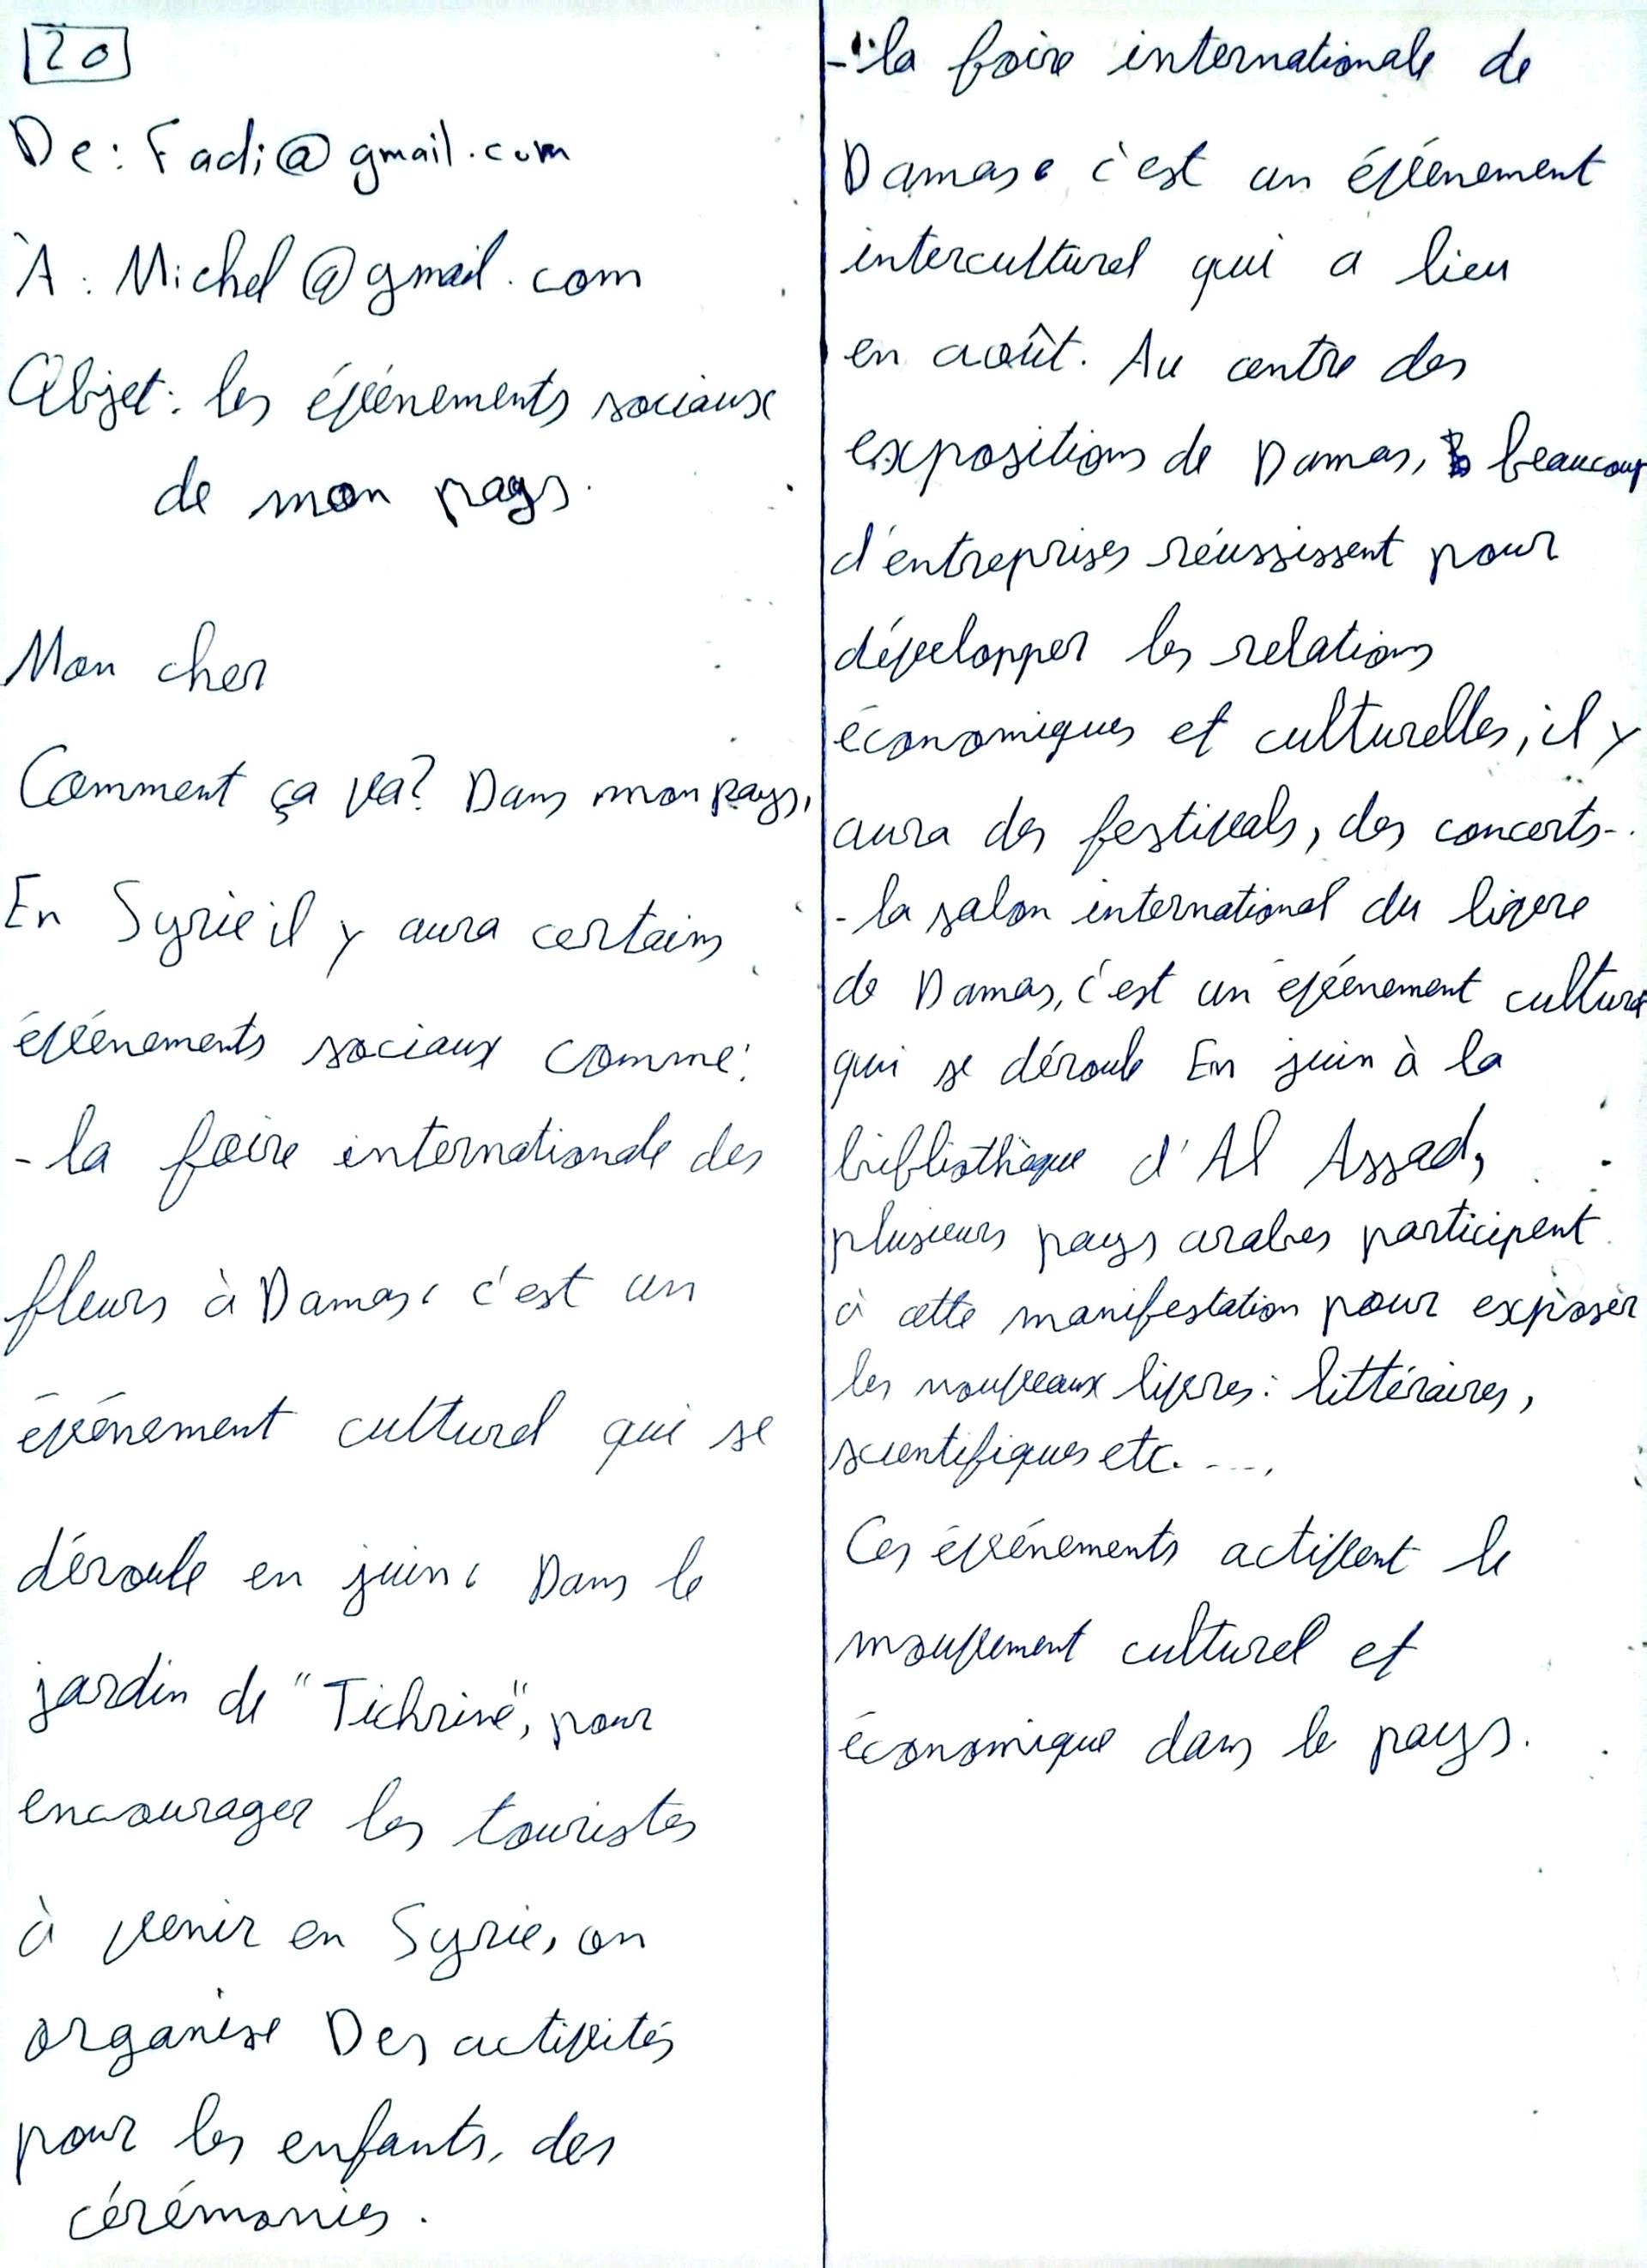 20
De: Fadi@gmail.com
À: Michel@gmail.com
Objet: les événements sociaux
de mon pays.
Mon cher
Comment ça va? Dans mon pays,
En Syrie il y aura certains
événements sociaux comme:
- la foire internationale des
fleurs à Damas, c'est un
événement culturel qui se
déroule en juin, Dans le
jardin de "Tichrine", pour
encourager les touristes
à venir en Syrie, on
organise Des activités
pour les enfants, des
cérémonies.
- la foire internationale de
Damas, c'est un événement
interculturel qui a lieu
en août. Au centre des
expositions de Damas, beaucoup
d'entreprises réussissent pour
développer les relations
économiques et culturelles, il y
aura des festivals, des concerts..
- la salon international du livre
de Damas, c'est un événement culture
qui se déroule En juin à la
bibliothèque d'Al Assad,
plusieurs pays arabes participent
à cette manifestation pour exposer
les nouveaux livres: littéraires,
scientifiques etc. ....
Ces événements activent le
mouvement culturel et
économique dans le pays.